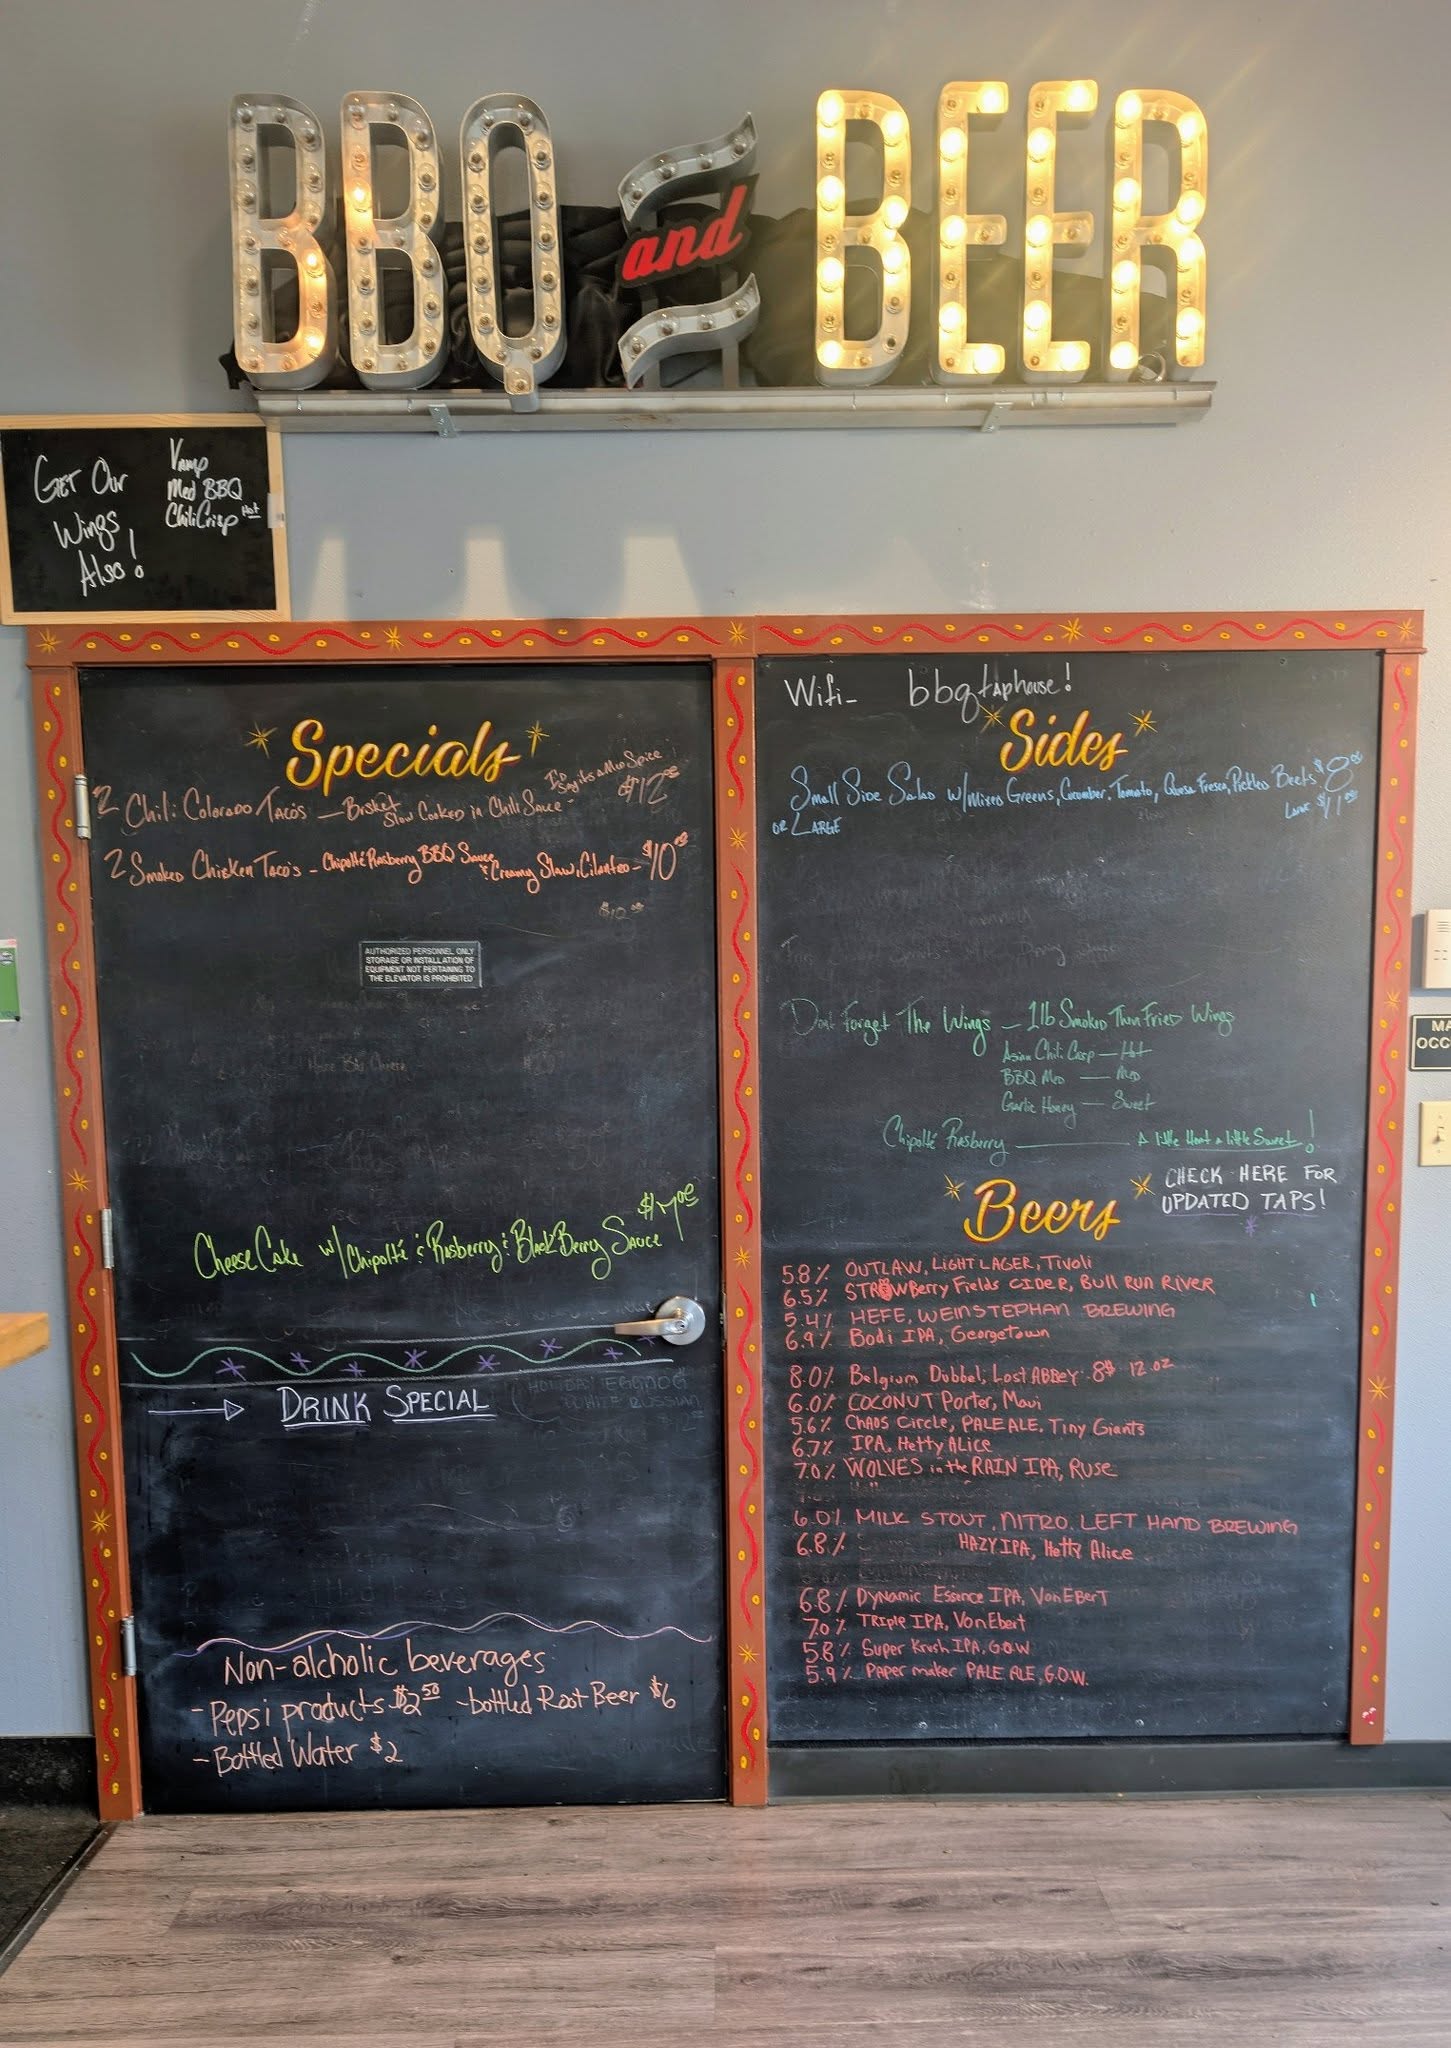 BBQ and BEER
GET OUR
Wings
Also!
Vamp
Med BBQ
Chili Crisp Hot
Specials
2 Chili Colorado Tacos — Brisket Slow Cooked in Chili Sauce - I'D Say its a Med Spice $12.00
2 Smoked Chicken Taco's - Chipotlé Rasberry BBQ Sauce & Creamy Slaw, Cilantro - $10.00
$10.00
AUTHORIZED PERSONNEL ONLY
STORAGE OR INSTALLATION OF
EQUIPMENT NOT PERTAINING TO
THE ELEVATOR IS PROHIBITED
Cheese Cake w/ Chipotlé & Rasberry & BlackBerry Sauce $7.00
DRINK SPECIAL
HOLIDAY EGGNOG
WHITE RUSSIAN
Non-alcholic beverages
- Pepsi products $2.50 - bottled Root Beer $6
- Bottled Water $2
Wifi- bbqtaphouse!
Sides
Small Side Salad w/ Mixed Greens, Cucumber, Tomato, Quesa Fresca, Pickled Beets $8.00
OR LARGE $11.00
Dont Forget The Wings — 1lb Smoked Then Fried Wings
Asian Chili Crisp — Hot
BBQ Med — Med
Garlic Honey — Sweet
Chipotlé Rasberry — A little Heat a little Sweet!
Beers
CHECK HERE FOR
UPDATED TAPS!
5.8% OUTLAW, LIGHT LAGER, Tivoli
6.5% STRAWBerry Fields CIDER, Bull Run River
5.4% HEFE, WEINSTEPHAN BREWING
6.9% Bodi IPA, Georgetown
8.0% Belgium Dubbel, Lost ABBEY 8$ 12.oz
6.0% COCONUT Porter, Maui
5.6% CHAOS Circle, PALE ALE, Tiny Giants
6.7% IPA, Hetty ALICE
7.0% WOLVES in the RAIN IPA, Ruse
6.0% MILK STOUT, NITRO, LEFT HAND BREWING
6.8% HAZY IPA, Hetty Alice
6.8% DYNAMIC Essence IPA, VonEBERT
7.0% TRIPLE IPA, VonEbert
5.8% Super Krush IPA, G.O.W.
5.9% Paper maker PALE ALE, G.O.W.
MA
OCC